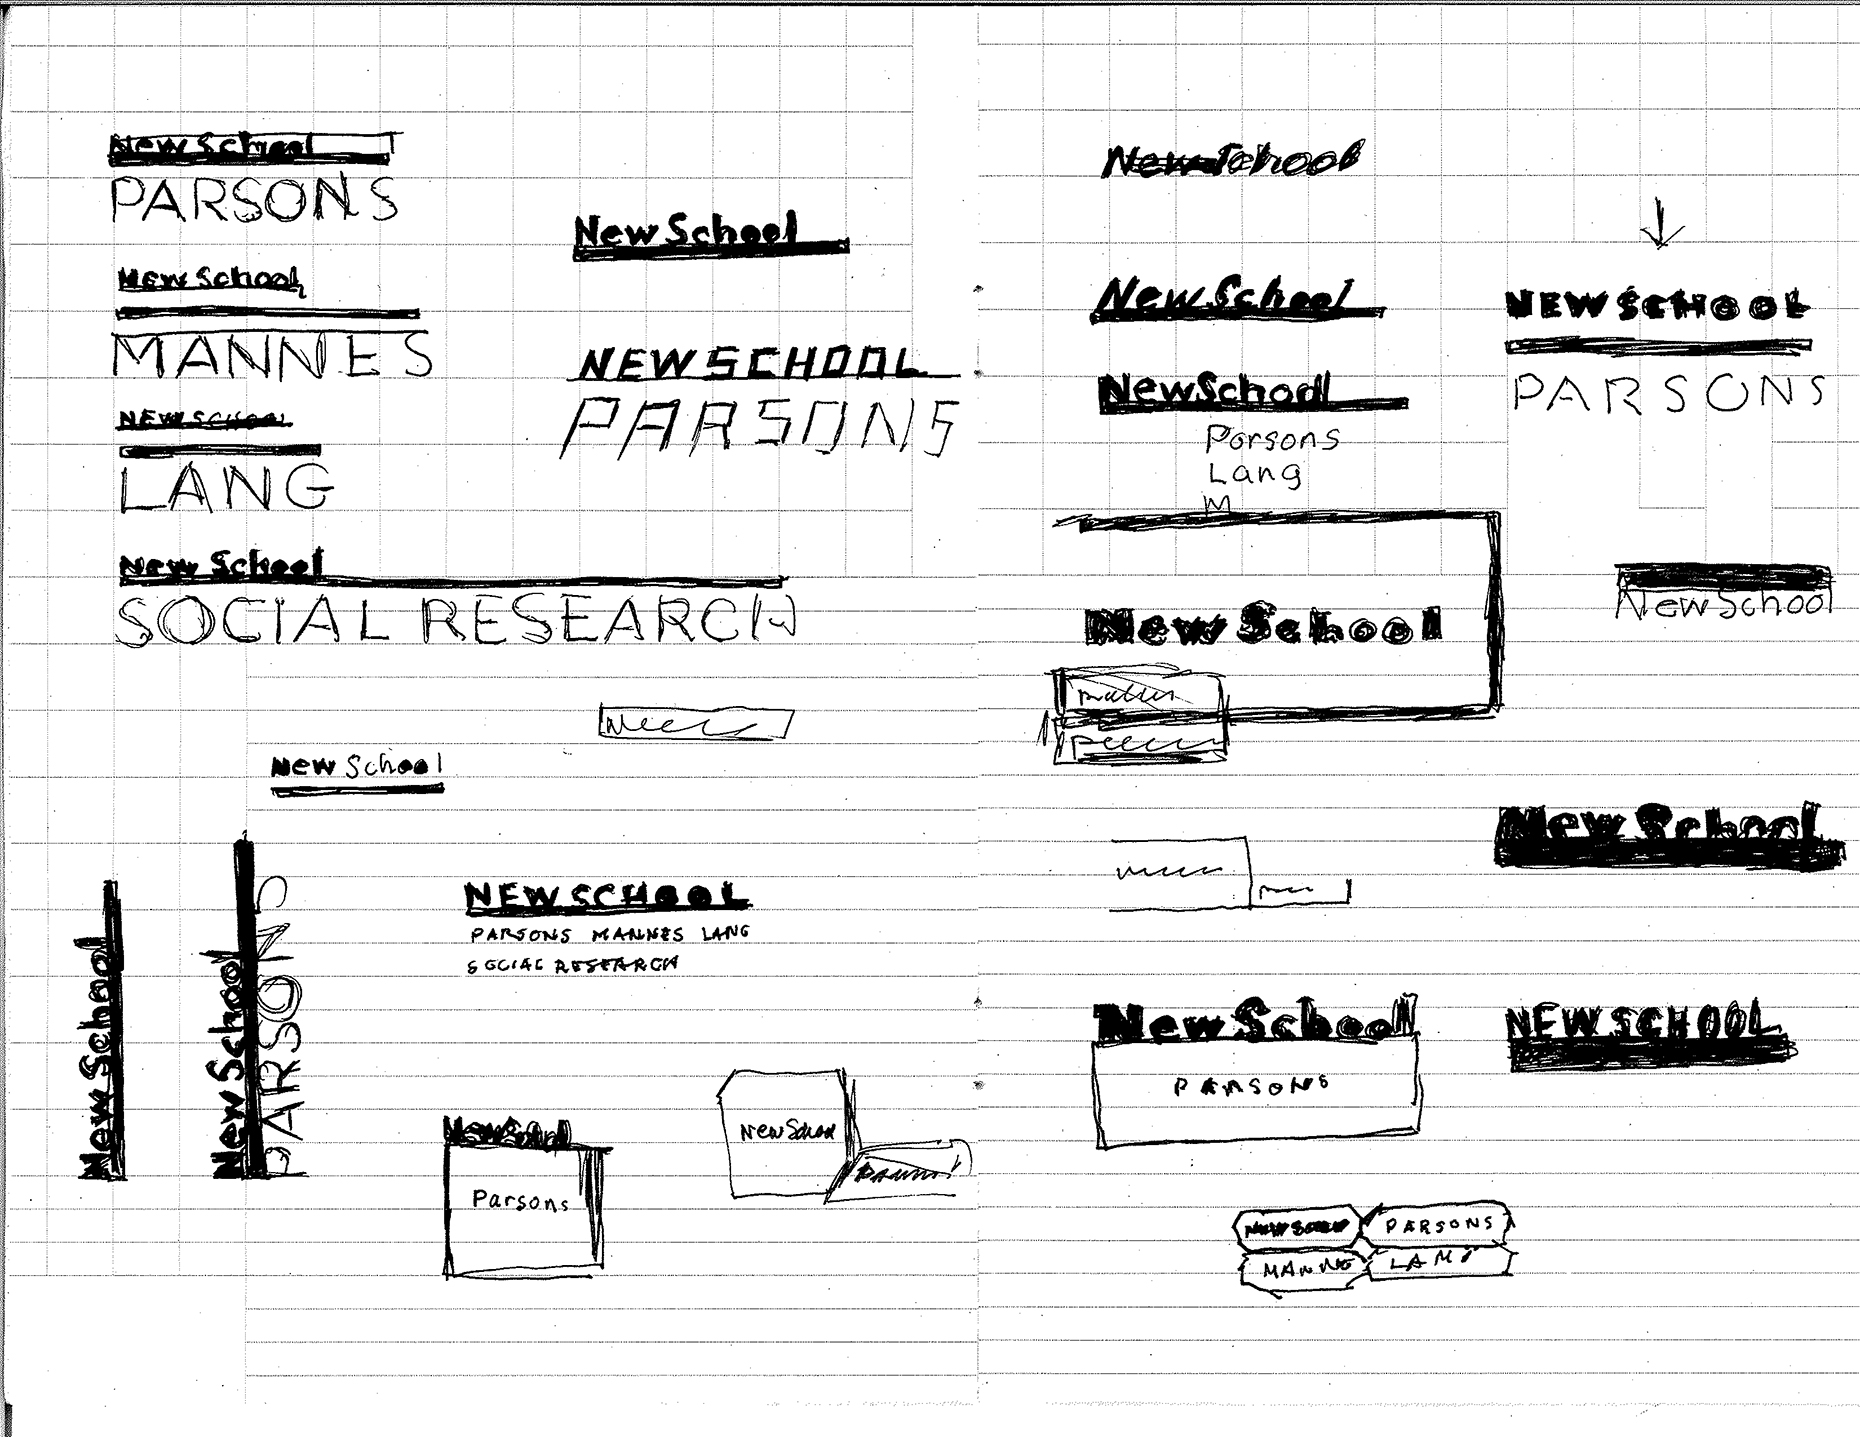 New School
PARSONS
New School
MANNES
NEW SCHOOL
LANG
New School
SOCIAL RESEARCH
New School
NEW SCHOOL
PARSONS
New School
New School
New School
PARSONS
NEW SCHOOL
PARSONS MANNES LANG
SOCIAL RESEARCH
New School
Parsons
New School
New School
New School
New School
Parsons
Lang
M
NEW SCHOOL
PARSONS
New School
New School
New School
New School
PARSONS
NEW SCHOOL
PARSONS
MANNE
LANG